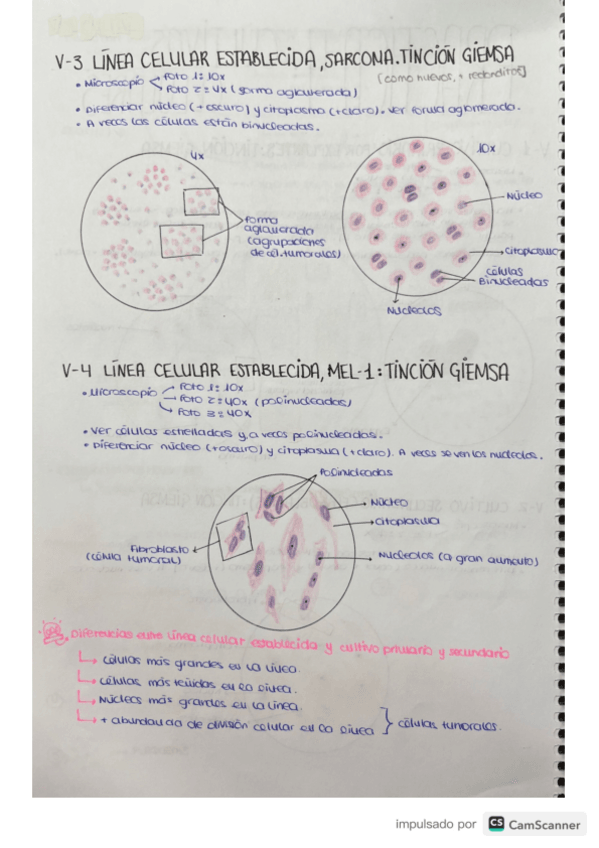 V-3 LÍNEA CELULAR ESTABLECIDA, SARCOMA. TINCIÓN GIEMSA
[como huevos, + redonditos]
• Microscopio
Foto 1: 10x
Foto 2: 4x (forma aglomerada)
• Diferenciar núcleo (+ oscuro) y citoplasma (+ claro). Ver forma aglomerada.
• A veces las células están binucleadas.
4x
10x
Forma
aglomerada
(agrupaciones
de cél. tumorales)
Núcleo
Citoplasma
células
Binucleadas
Nucleolos
V-4 LÍNEA CELULAR ESTABLECIDA, MEL-1: TINCIÓN GIEMSA
• Microscopio
Foto 1: 10x
Foto 2: 40x (polinucleadas)
Foto 3: 40x
• Ver células estrelladas y a veces polinucleadas.
• Diferenciar núcleo (+ oscuro) y citoplasma (+ claro). A veces se ven los nucleolos.
Polinucleadas
Núcleo
citoplasma
Fibroblasto
(célula tumoral)
Nucleolos (a gran aumento)
Diferencias entre línea celular establecida y cultivo primario y secundario
células más grandes en la línea.
células más teñidas en la línea.
Núcleos más grandes en la línea.
+ abundancia de división celular en la línea } células tumorales.
impulsado por CS CamScanner